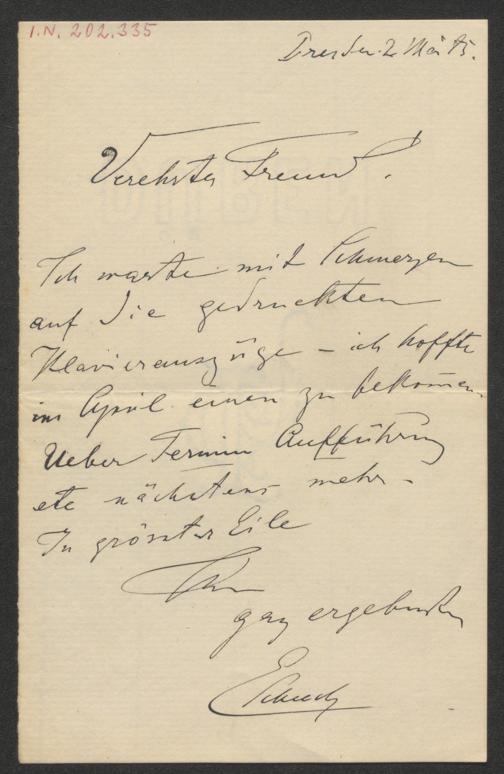 I.N. 202.335
Dresden 2 März 95.
Verehrter Freund!
Ich warte mit Schmerzen
auf die gedruckten
Klavierauszüge – ich hoffte
im April einen zu bekommen.
Ueber Termin Aufführung
etc nächstens mehr –
In grösster Eile
Ihr
ganz ergebenster
ESchuch